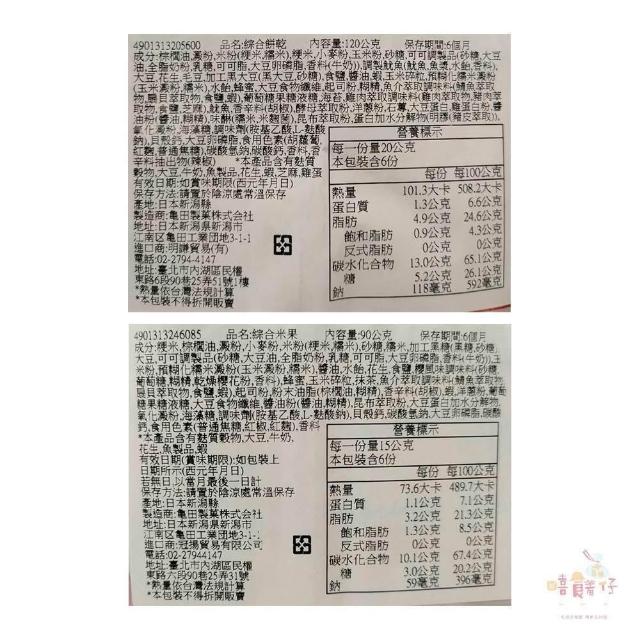 4901313205600 品名:綜合餅乾 內容量:120公克 保存期間:6個月
成分:棕櫚油,澱粉,米粉(粳米,糯米),小麥粉,玉米粉,砂糖,可可調製品(砂糖,大豆
油,全脂奶粉,乳糖,可可脂,大豆卵磷脂,香料(牛奶)),調製魷魚(魷魚,魚漿,水飴,香料),
大豆,花生,毛豆,加工黑大豆(黑大豆,砂糖),食鹽,醬油,蝦,玉米碎粒,預糊化糯米澱粉
(玉米澱粉,糯米),水飴,蜂蜜,大豆食物纖維,起司粉,糊精,魚介萃取調味料(鯖魚萃取
物,扇貝萃取物,食鹽,蝦),葡萄糖果糖液糖,海苔,雞肉萃取調味料(雞肉萃取物,豬肉萃
取物,食鹽,芝麻),鯷魚,香辛料(胡椒),酵母萃取粉,洋蔥粉,石蓴,大豆蛋白,雞蛋白粉,醬
油粉(醬油,糊精),味醂(糯米,米麴菌),昆布萃取粉,蛋白加水分解物(明膠(豬皮萃取)),
氧化澱粉,海藻糖,調味劑(胺基乙酸,L-麩酸
鈉),貝殼鈣,大豆卵磷脂,食用色素(胡蘿蔔,
紅麴,普通焦糖),碳酸氫鈉,碳酸鈣,香料,香
辛料抽出物(辣椒) *本產品含有麩質
穀物,大豆,牛奶,魚製品,花生,蝦,芝麻,雞蛋
有效日期:如賞味期限(西元年月日)
保存方法:請置於陰涼處常溫保存
產地:日本新潟縣
製造商:亀田製菓株式会社
地址:日本新潟県新潟市
江南区亀田工業団地3-1-1
進口商:明謙貿易(有)
電話:02-2794-4147
地址:臺北市內湖區民權
東路6段90巷25弄51號1樓
*熱量依台灣法規計算
*本包裝不得拆開販賣
營養標示
每一份量20公克
本包裝含6份
每份 每100公克
熱量 101.3大卡 508.2大卡
蛋白質 1.3公克 6.6公克
脂肪 4.9公克 24.6公克
飽和脂肪 0.9公克 4.3公克
反式脂肪 0公克 0公克
碳水化合物 13.0公克 65.1公克
糖 5.2公克 26.1公克
鈉 118毫克 592毫克
4901313246085 品名:綜合米果 內容量:90公克 保存期間:6個月
成分:粳米,棕櫚油,澱粉,小麥粉,米粉(粳米,糯米),砂糖,糯米,加工黑糖(黑糖,砂糖),
大豆,可可調製品(砂糖,大豆油,全脂奶粉,乳糖,可可脂,大豆卵磷脂,香料(牛奶)),玉
米粉,預糊化糯米澱粉(玉米澱粉,糯米),醬油,水飴,花生,食鹽,櫻風味調味料(砂糖,
葡萄糖,糊精,乾燥櫻花粉,香料),蜂蜜,玉米碎粒,抹茶,魚介萃取調味料(鯖魚萃取物,
扇貝萃取物,食鹽,蝦),起司粉,粉末油脂(棕櫚油,糊精),香辛料(胡椒),蝦,洋蔥粉,葡萄
糖果糖液糖,大豆食物纖維,醬油粉(醬油,糊精),昆布萃取粉,大豆蛋白加水分解物,
氧化澱粉,海藻糖,調味劑(胺基乙酸,L-麩酸鈉),貝殼鈣,碳酸氫鈉,大豆卵磷脂,碳酸
鈣,食用色素(普通焦糖,紅椒,紅麴),香料
*本產品含有麩質穀物,大豆,牛奶,
花生,魚製品,蝦
有效日期(賞味期限):如包裝上
日期所示(西元年月日)
若無日,以當月最後一日計
保存方法:請置於陰涼處常溫保存
產地:日本新潟縣
製造商:亀田製菓株式会社
地址:日本新潟県新潟市
江南区亀田工業団地3-1-1
進口商:冠揚貿易有限公司
電話:02-27944147
地址:臺北市內湖區民權
東路六段90巷25弄31號
*熱量依台灣法規計算
*本包裝不得拆開販賣
營養標示
每一份量15公克
本包裝含6份
每份 每100公克
熱量 73.6大卡 489.7大卡
蛋白質 1.1公克 7.1公克
脂肪 3.2公克 21.3公克
飽和脂肪 1.3公克 8.5公克
反式脂肪 0公克 0公克
碳水化合物 10.1公克 67.4公克
糖 3.0公克 20.2公克
鈉 59毫克 396毫克